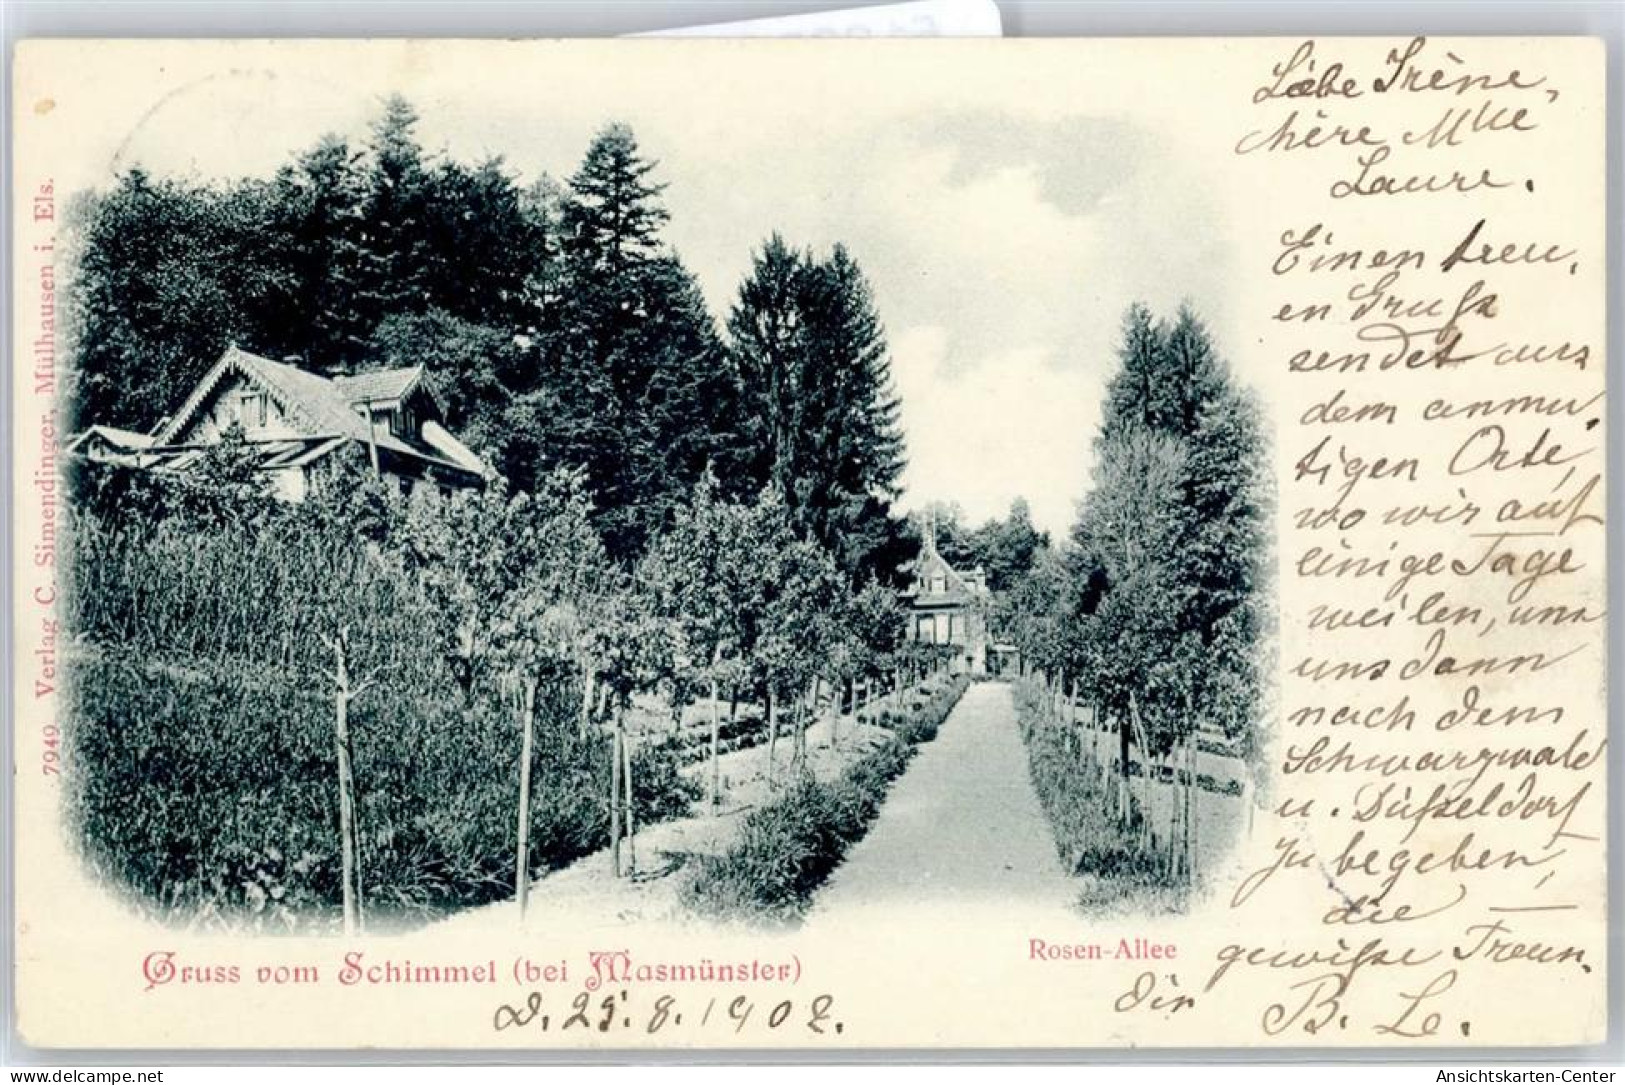 Liebe Irène,
chère Mlle
Laure.
Einen treu,
en Grufs
sendet aus
dem anmu,
tigen Orte,
wo wir auf
einige Tage
weilen, um
uns dann
nach dem
Schwarzwald
u. Düfseldorf
zu begeben,
die —
gewifse Freun,
din B. Le.
7949 Verlag C. Simendinger, Mülhausen i. Els.
Gruss vom Schimmel (bei Masmünster)
Rosen-Allee
D. 25. 8. 1902.
Ansichtskarten-Center